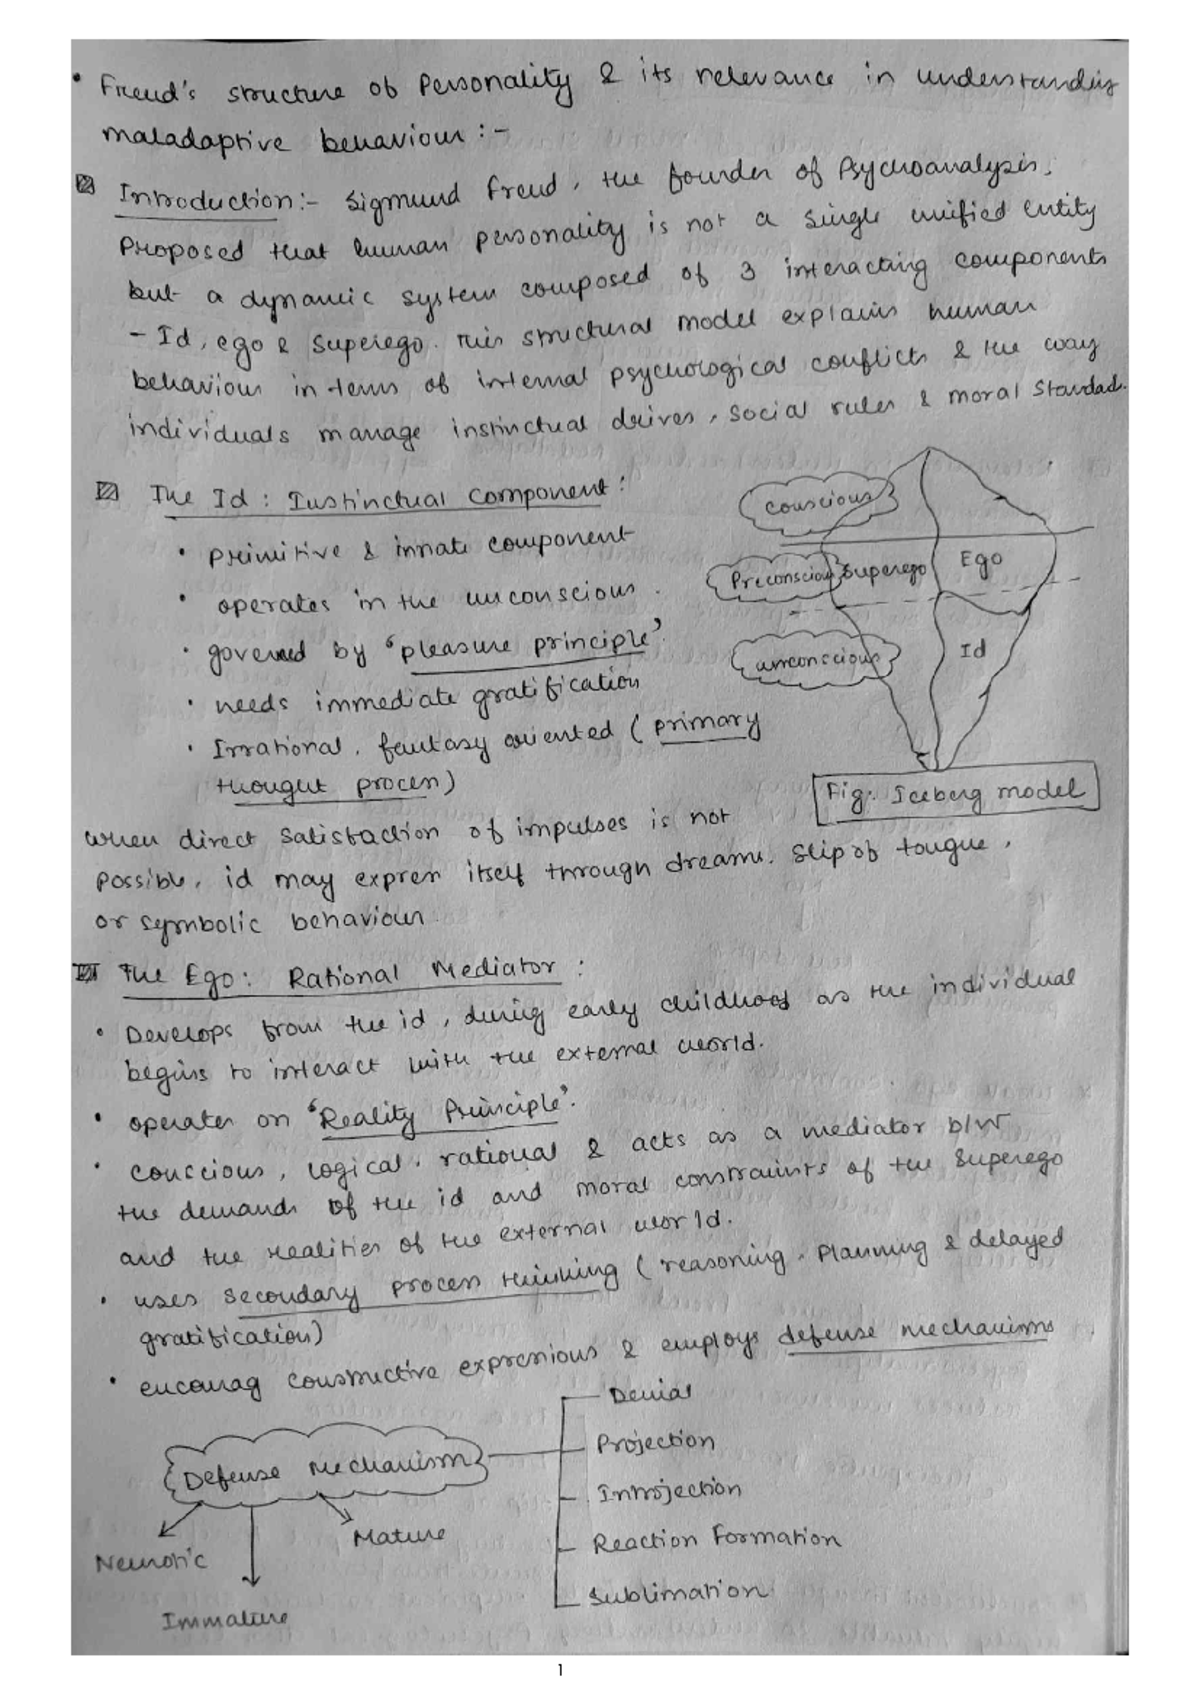 • Freud's structure of Personality & its relevance in understanding
maladaptive behaviour :-
Introduction:- Sigmund Freud, the founder of Psychoanalysis,
Proposed that human personality is not a single unified entity
but a dynamic system composed of 3 interacting components
- Id, ego & Superego. This structural model explains human
behaviour in terms of internal psychological conflicts & the way
individuals manage instinctual drives, social rules & moral Standards.
The Id : Instinctual Component :
• primitive & innate component
• operates in the unconscious.
• governed by 'pleasure principle'.
• needs immediate gratification
• Irrational, fantasy oriented (primary
thought process)
conscious
Preconscious
Superego
Ego
unconscious
Id
Fig:. Iceberg model
when direct satisfaction of impulses is not
possible, id may express itself through dreams, slip of tongue,
or symbolic behaviour.
The Ego: Rational Mediator :
• Develops from the id, during early childhood as the individual
begins to interact with the external world.
• operates on 'Reality Principle'.
• conscious, logical, rational & acts as a mediator b/w
the demands of the id and moral constraints of the Superego
and the realities of the external world.
• uses secondary process thinking (reasoning, planning & delayed
gratification)
• encourag constructive expressions & employs defense mechanisms
Defense Mechanism
Denial
Projection
Introjection
Reaction Formation
Sublimation
Neurotic
Immature
Mature
1